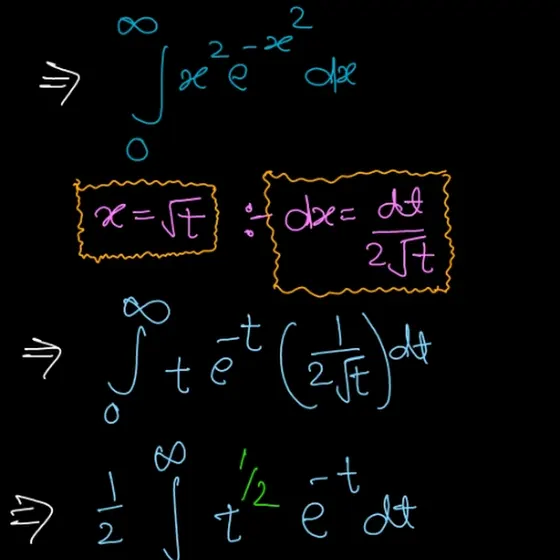 ⇒ ∫₀^∞ x² e^(-x²) dx
x = √t ÷ dx = dt/(2√t)
⇒ ∫₀^∞ t e^(-t) (1/(2√t)) dt
⇒ 1/2 ∫^∞ t^(1/2) e^(-t) dt